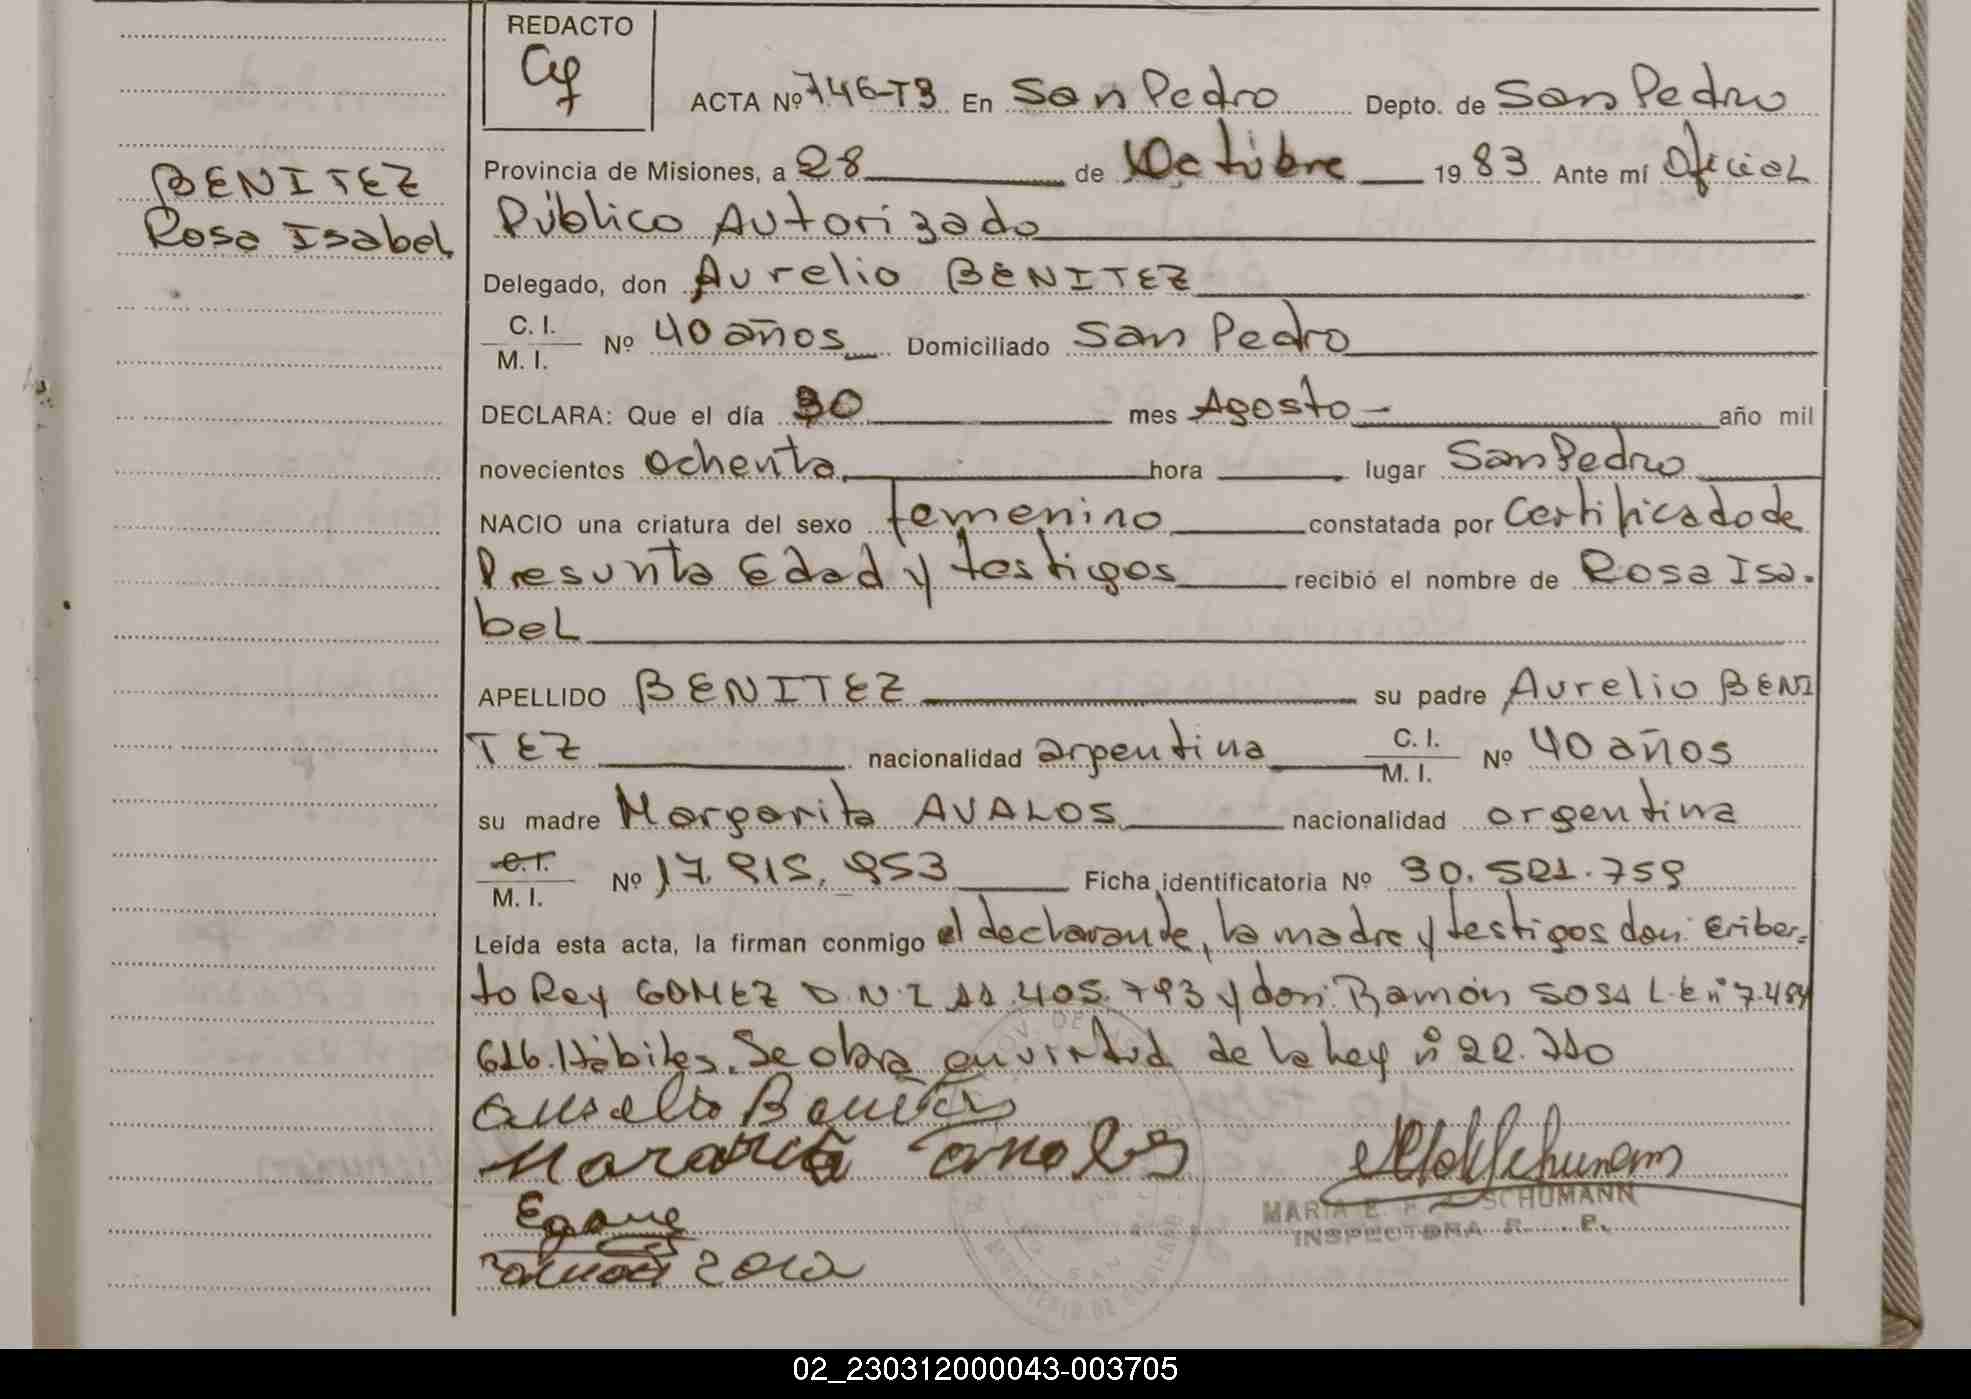 REDACTO
ACTA Nº 746-T3 En San Pedro Depto. de San Pedro
Provincia de Misiones, a 28 de Octubre 1983 Ante mí Oficial
BENITEZ
Rosa Isabel
Público Autorizado
Delegado, don Aurelio BENITEZ
C. I.
M. I. Nº 40 años Domiciliado San Pedro
DECLARA: Que el día 30 mes Agosto año mil
novecientos ochenta hora lugar San Pedro
NACIO una criatura del sexo femenino constatada por Certificado de
Presunta Edad y testigos recibió el nombre de Rosa Isa-
bel
APELLIDO BENITEZ su padre Aurelio BENI
TEZ nacionalidad argentina C. I. M. I. Nº 40 años
su madre Margarita AVALOS nacionalidad argentina
C. I.
M. I. Nº 17.915.953 Ficha identificatoria Nº 30.521.759
Leída esta acta, la firman conmigo el declarante, la madre y testigos don: Eriber=
to Rey GOMEZ D.N.I 11.405.793 y don: Ramón SOSA L.E nº 7.484
616. Hábiles. Se obra en virtud de la Ley nº 22.710
MARIA E. SCHUMANN
INSPECTORA
02_230312000043-003705